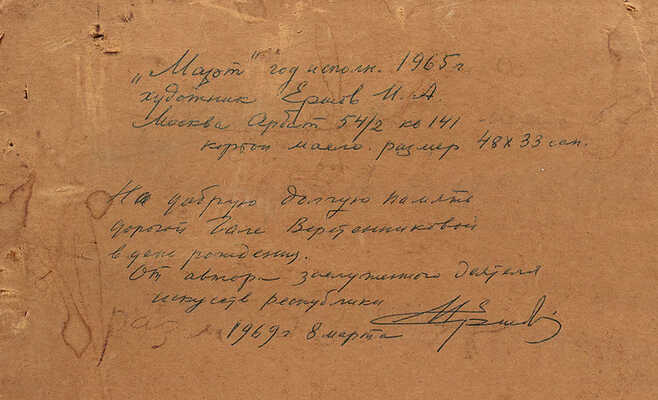 „Март“ год исполн. 1965 г.
художник Ершов И. А.
Москва Арбат 54/2 кв 141
картон масло. размер 48 х 33 сан.
На добрую долгую память
дорогой Гале Веретенниковой
в день рождения.
От автора заслуженного деятеля
искуств республики
1969 г 8 марта